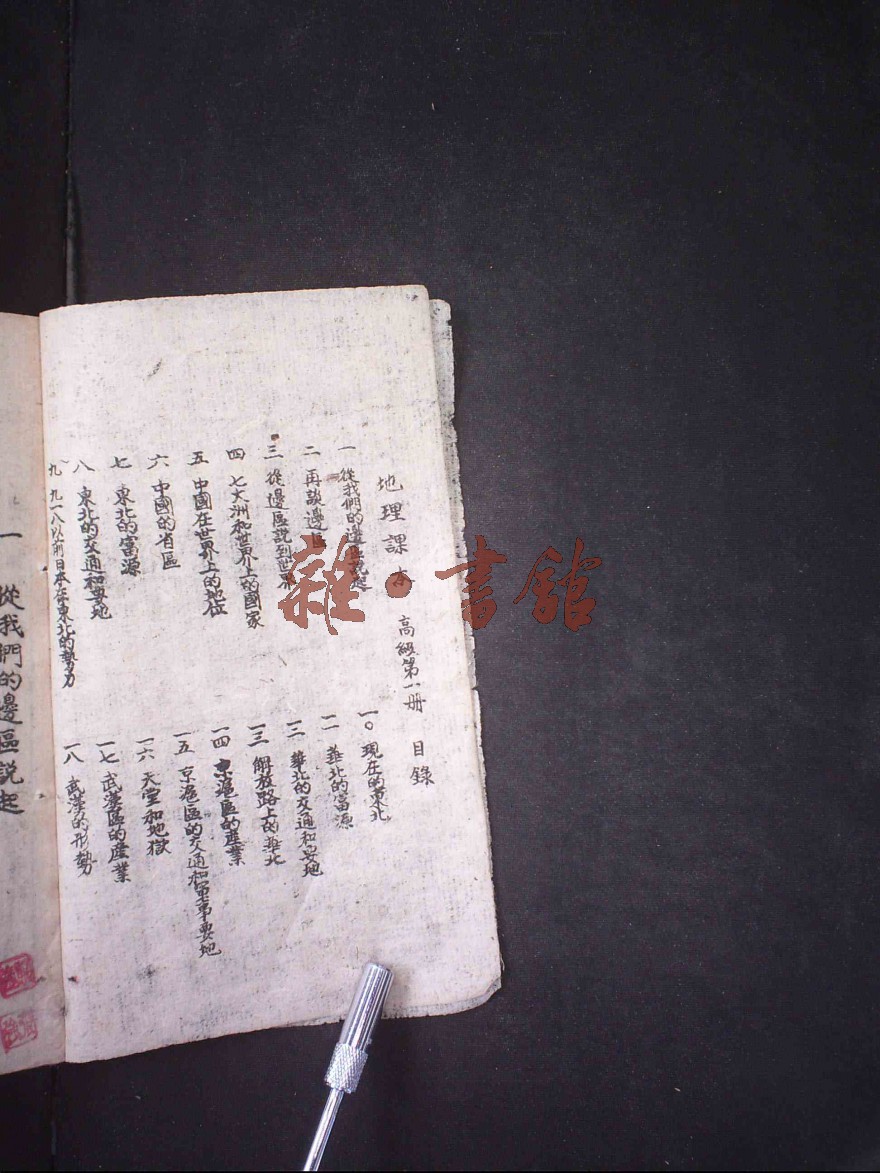 地理課本 高級第一册 目錄
一 從我們的邊區説起
二 再談邊區
三 從邊區説到世界
四 七大洲和世界上的國家
五 中國在世界上的地位
六 中國的省區
七 東北的富源
八 東北的交通和要地
九 九一八以前日本在東北的勢力
一〇 現在的東北
一一 華北的富源
一二 華北的交通和要地
一三 解放路上的華北
一四 京滬區的産業
一五 京滬區的交通和軍事要地
一六 天堂和地獄
一七 武漢區的産業
一八 武漢的形勢
一 從我們的邊區説起
雜·書舘